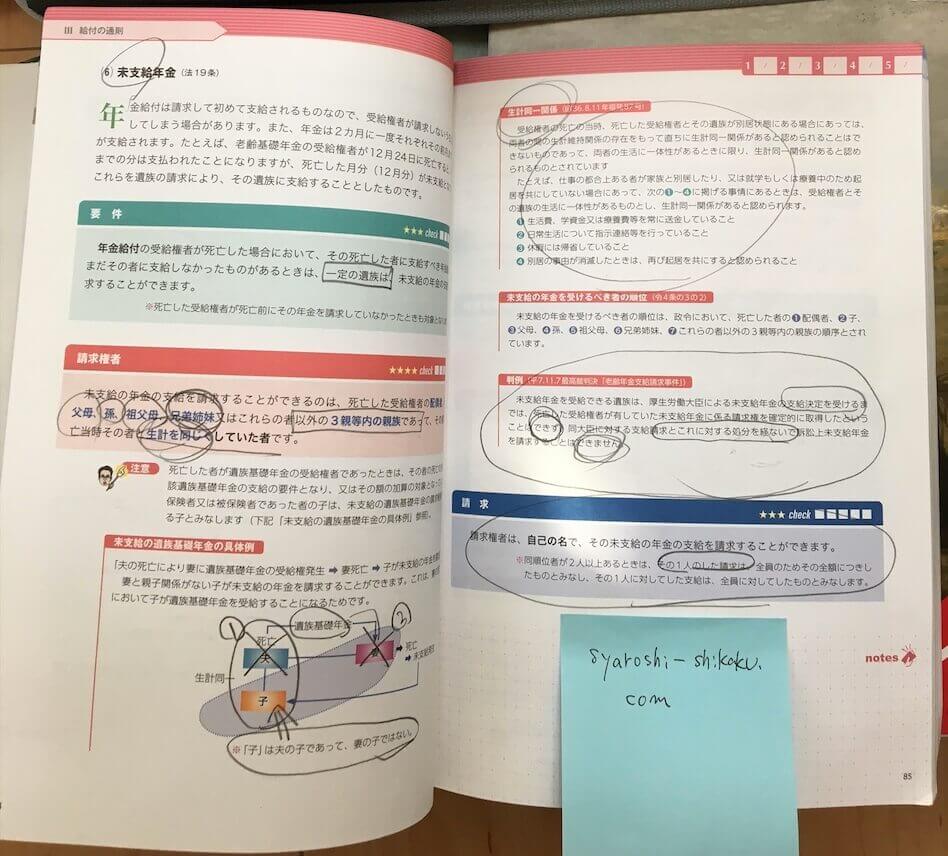 III 給付の通則
(6) 未支給年金（法19条）
年金給付は請求して初めて支給されるものなので、受給権者が請求しない
してしまう場合があります。また、年金は2カ月に一度それぞれその前月
が支給されます。たとえば、老齢基礎年金の受給権者が12月24日に死亡する
までの分は支払われたことになりますが、死亡した月分（12月分）が未支給と
これらを遺族の請求により、その遺族に支給することとしたものです。
要件
★★★ check
年金給付の受給権者が死亡した場合において、その死亡した者に支給すべき年
まだその者に支給しなかったものがあるときは、一定の遺族は、未支給の年金の
求することができます。
※死亡した受給権者が死亡前にその年金を請求していなかったときも対象とな
請求権者
★★★★ check
未支給の年金の支給を請求することができるのは、死亡した受給権者の配偶者
父母、孫、祖父母、兄弟姉妹又はこれらの者以外の3親等内の親族であって、その
亡当時その者と生計を同じくしていた者です。
注意
死亡した者が遺族基礎年金の受給権者であったときは、その者の死亡
該遺族基礎年金の支給の要件となり、又はその額の加算の対象となって
保険者又は被保険者であった者の子は、未支給の遺族基礎年金の請求
る子とみなします（下記「未支給の遺族基礎年金の具体例」参照）。
未支給の遺族基礎年金の具体例
「夫の死亡により妻に遺族基礎年金の受給権発生➡妻死亡➡子が未支給の年金を
妻と親子関係がない子が未支給の年金を請求することができます。これは、
において子が遺族基礎年金を受給することになるためです。
① 遺族基礎年金 ②
死亡
夫
➡死亡
➡未支給
生計同一
子
※「子」は夫の子であって、妻の子ではない。
1 / 2 / 3 / 4 / 5 /
生計同一関係
受給権者の死亡の当時、死亡した受給権者とその遺族が別居状態にある場合にあっては、
両者の間の生計維持関係の存在をもって直ちに生計同一関係があると認められることはで
きないものであって、両者の生活に一体性があるときに限り、生計同一関係があると認め
られるものとされています
たとえば、仕事の都合上ある者が家族と別居したり、又は就学もしくは療養中のため起
居を共にしていない場合にあって、次の❶〜❹に掲げる事情にあるときは、受給権者とそ
の遺族の生活に一体性があるものとし、生計同一関係があると認められます。
❶ 生活費、学資金又は療養費等を常に送金していること
❷ 日常生活について指示連絡等を行っていること
❸ 休暇には帰省していること
❹ 別居の事由が消滅したときは、再び起居を共にすると認められること
未支給の年金を受けるべき者の順位（令4条の3の2）
未支給の年金を受けるべき者の順位は、政令において、死亡した者の❶配偶者、❷子、
❸父母、❹孫、❺祖父母、❻兄弟姉妹、❼これらの者以外の3親等内の親族の順序とされ
ています。
判例（平7.11.7最高裁判決「老齢年金支給請求事件」）
未支給年金を受給できる遺族は、厚生労働大臣による未支給年金の支給決定を受けるま
では、死亡した受給権者が有していた未支給年金に係る請求権を確定的に取得したという
ことはできず、同大臣に対する支給請求とこれに対する処分を経ないで訴訟上未支給年金
を請求することはできません。
請求
★★★ check
請求権者は、自己の名で、その未支給の年金の支給を請求することができます。
※同順位者が2人以上あるときは、その1人のした請求は、全員のためその全額につきし
たものとみなし、その1人に対してした支給は、全員に対してしたものとみなします。
syaroshi-shikoku.
com
notes
85